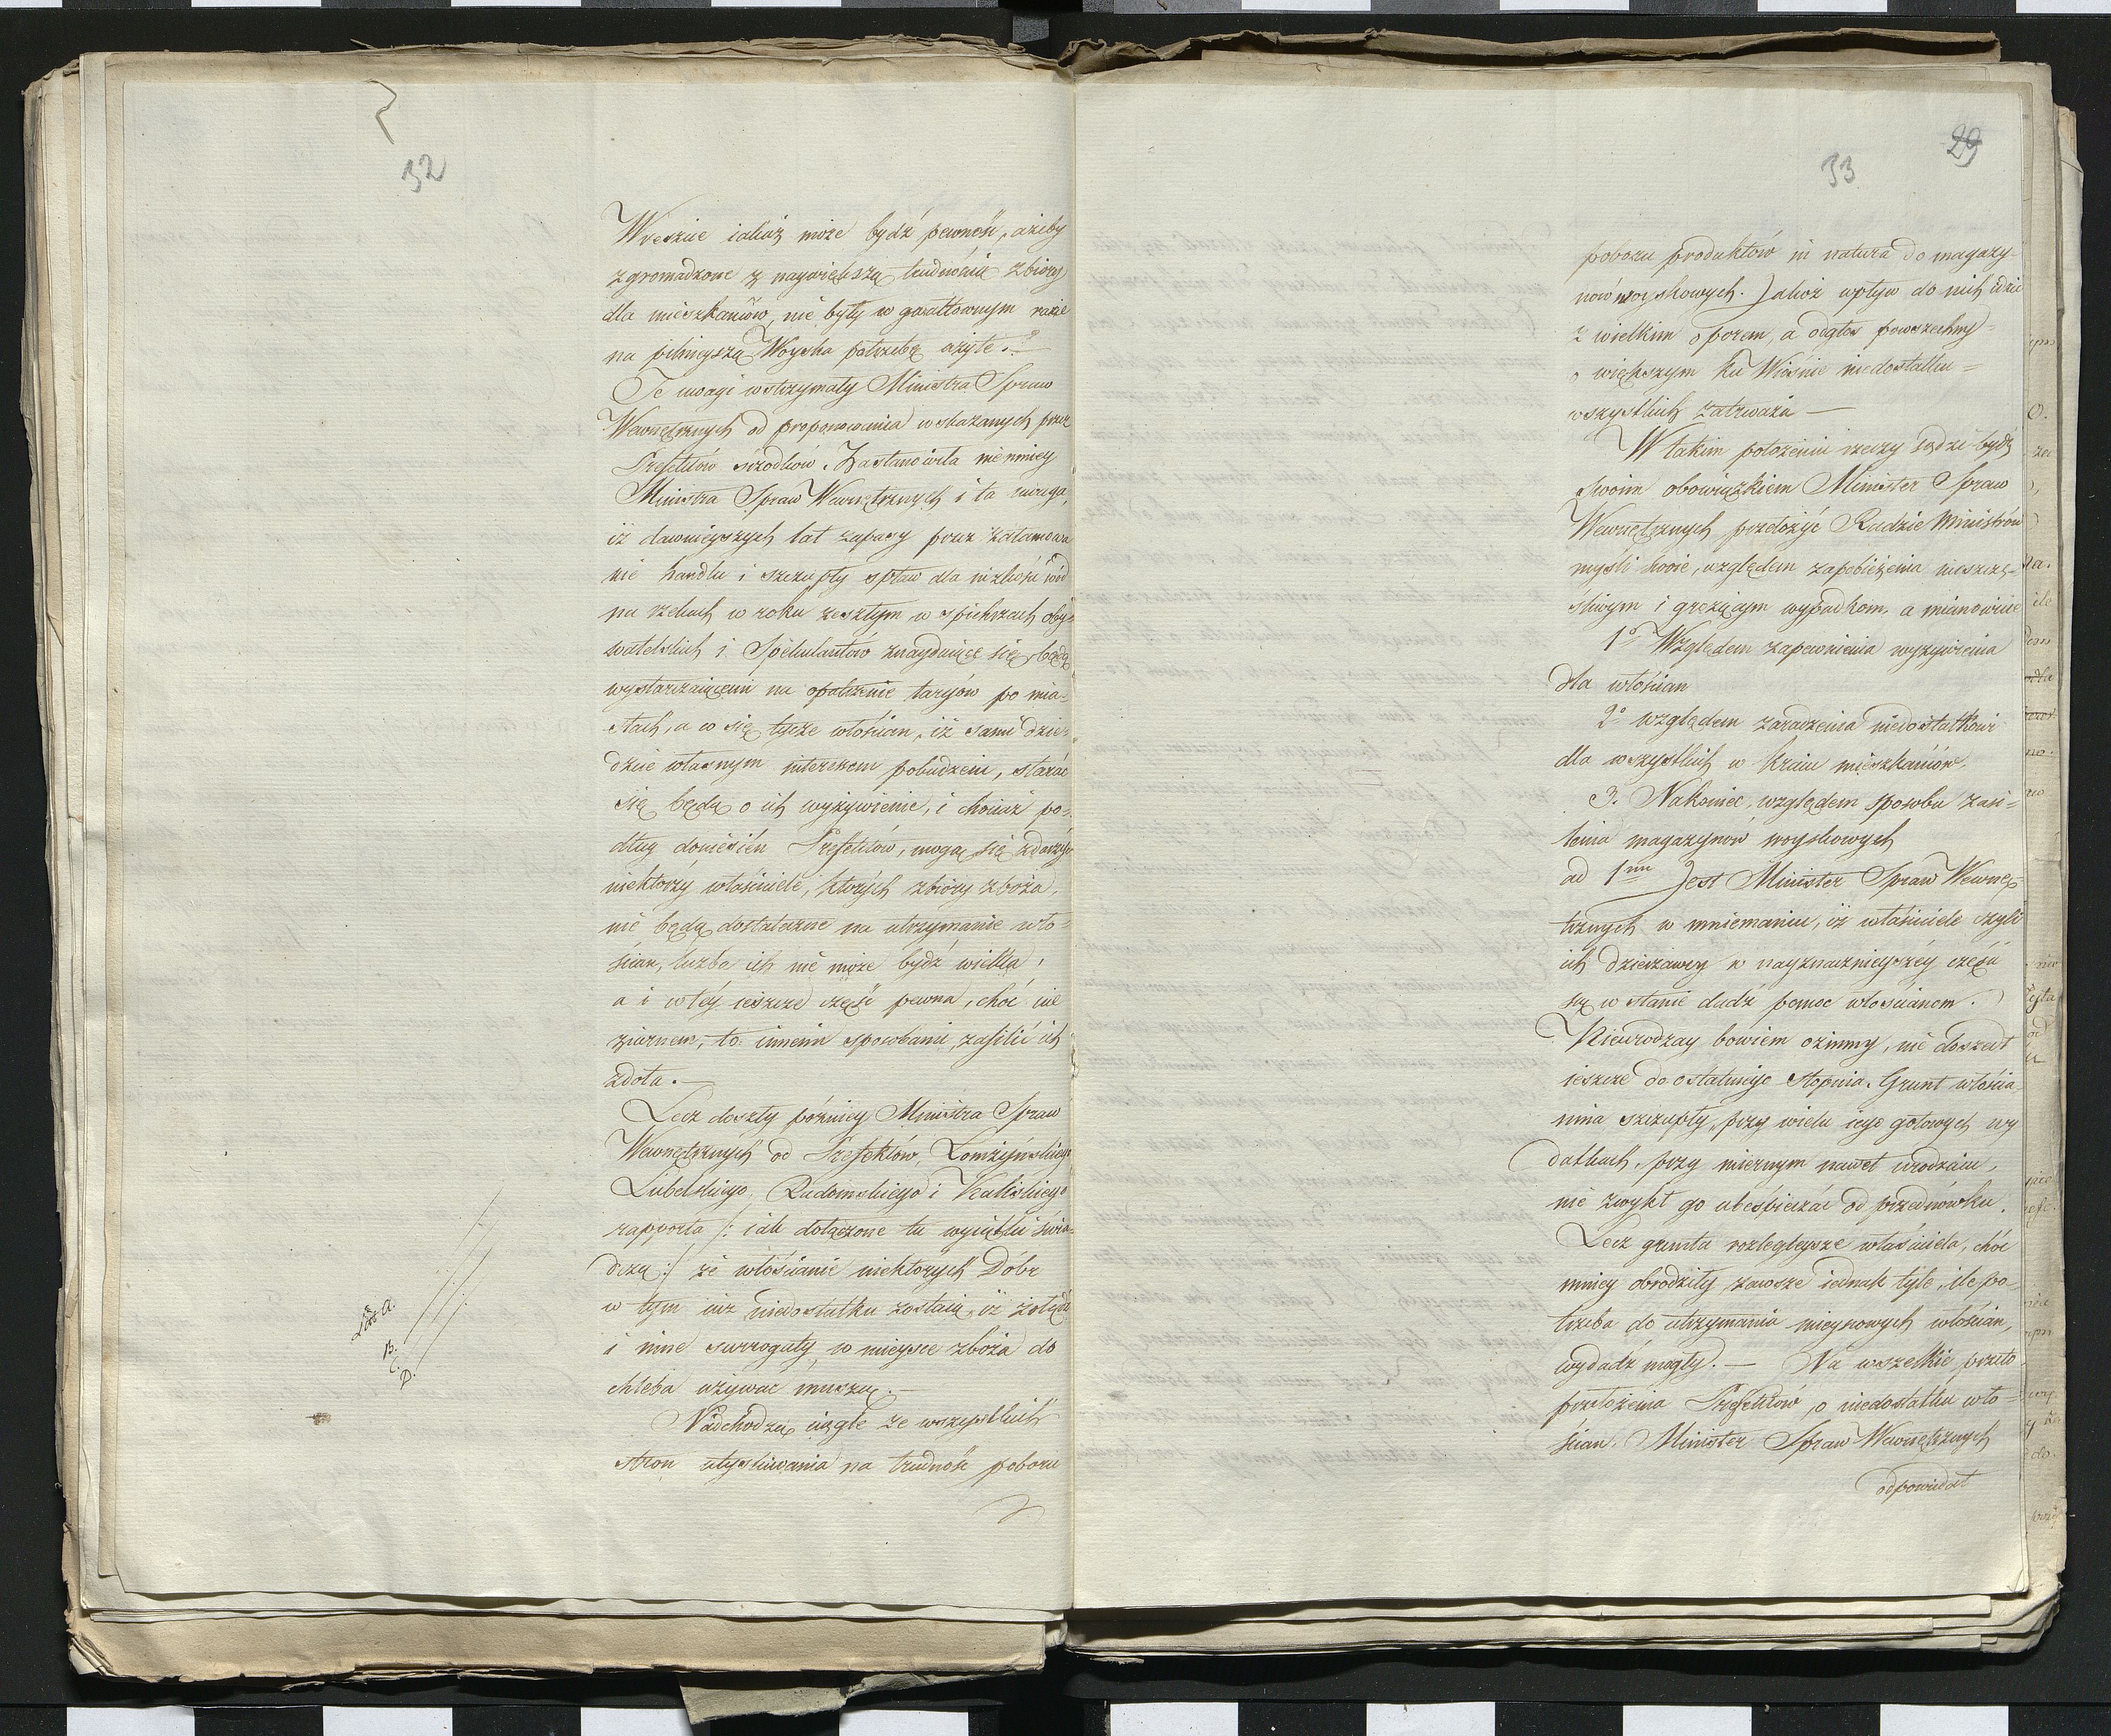 32
Wreszcie iakaż może bydź pewność, ażeby
zgromadzone z naywiększą trudnością zbiory
dla mieszkańców, nie były w gwałtownym razie
na pilnieyszą Woyska potrzebę użyte.?
Te uwagi wstrzymały Ministra Spraw
Wewnętrznych od proponowania wskazanych przez
Prefektów śrzodków. Zastanowiła niemniey
Ministra Spraw Wewnętrznych i ta uwaga,
iż dawnieyszych lat zapasy przez zatamowa
nie handlu i szczupły spław dla nizkości wód
na rzekach w roku zeszłym w spichrzach oby-
watelskich i Spekulantów znayduiące się, będą
wystarczaiącemi na opatrzenie targów po mia-
stach, a co się tycze włościan, iż sami dzie-
dzice własnym interessem pobudzeni, starać
się będą o ich wyżywienie, i chociaż po-
dług doniesień Prefektów, mogą się zdarzyć
niektorzy właściciele, ktorych zbiory zboża,
nie będą dostateczne na utrzymanie wło-
ścian, liczba ich nie może bydź wielka,
a i w téy ieszcze część pewna, choć nie
ziarnem, to innemi sposobami zasilić ich
zdoła.
Lecz doszły pózniey Ministra Spraw
Wewnętrznych od Prefektów, Łomżyńskiego
Lubelskiego, Radomskiego i Kaliskiego
rapporta /: iak dołączone tu wyciągi świa-
dczą :/ że włościanie niektorych Dóbr
w tym iuż niedostatku zostaią, iż żołędzi
i inne surrogaty w mieysce zboża do
chleba używać muszą.
Nadchodzą ciągle ze wszystkich
stron utyskiwania na trudność poboru
Litt A.
B.
C.
D.
29
33
poboru produktów in natura do magazy-
nów woyskowych. Jakoż wpływ do nich idzie
z wielkim oporem, a odgłos powszechny
o większym ku Wiośnie niedostatku
wszystkich zatrważa —
W takim położeniu rzeczy sądzi bydź
swoim obowiązkiem Minister Spraw
Wewnętrznych przełożyć Radzie Ministrów
myśli swoie, względem zapobieżenia nieszczę-
śliwym i grożącym wypadkom, a mianowicie
1o Względem zapewnienia wyżywienia
dla włościan
2o względem zaradzenia niedostatkowi
dla wszystkich w kraiu mieszkańców,
3. Nakoniec, względem sposobu zasi-
lenia magazynów woyskowych
ad 1mm Jest Minister Spraw Wewnę-
trznych w mniemaniu, iż właściciele czyli
ich dzierzawcy w nayznacznieyszéy części
są w stanie dadź pomoc włościanom.
Nieurodzay bowiem ozimny, nie doszedł
ieszcze do ostatniego stopnia. Grunt włościa
nina szczupły, przy wielu iego gotowych wy
datkach, przy miernym nawet urodzaiu,
nie zwykł go ubespieczać od przednówku.
Lecz grunta rozlegleysze właściciela, choć
mniey obrodziły, zawsze iednak tyle, ile po-
trzeba do utrzymania mieyscowych włościan,
wydadź mogły. — Na wszelkie przeto
przełożenia Prefektów, o niedostatku wło-
ścian, Minister Spraw Wewnętrznych
odpowiedał